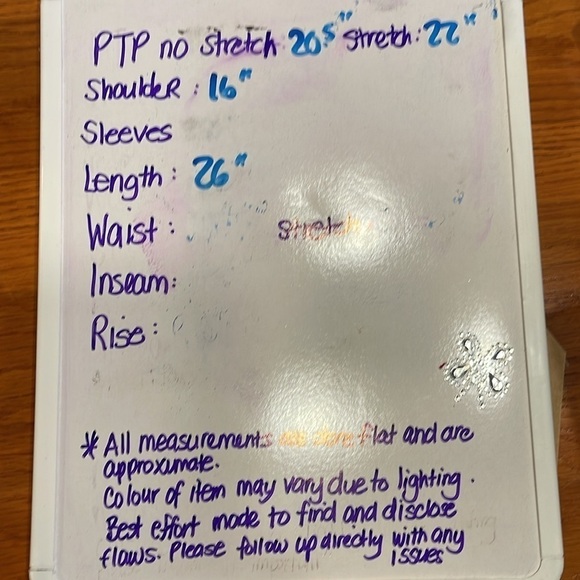 PTP no stretch 20.5" stretch: 22"
Shoulder : 16"
Sleeves
Length : 26"
Waist : stretch
Inseam:
Rise :
* All measurements are done flat and are
approxumate.
Colour of item may vary due to lighting.
Best effort made to find and disclose
flaws. Please follow up directly with any
issues